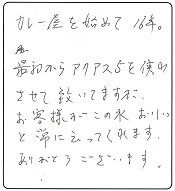 カレー屋を始めて16年。
最初からアクアス5を使わ
させて戴いてますが、
お客様が「この水おいしい
と常に言ってくれます。
ありがとうございます。